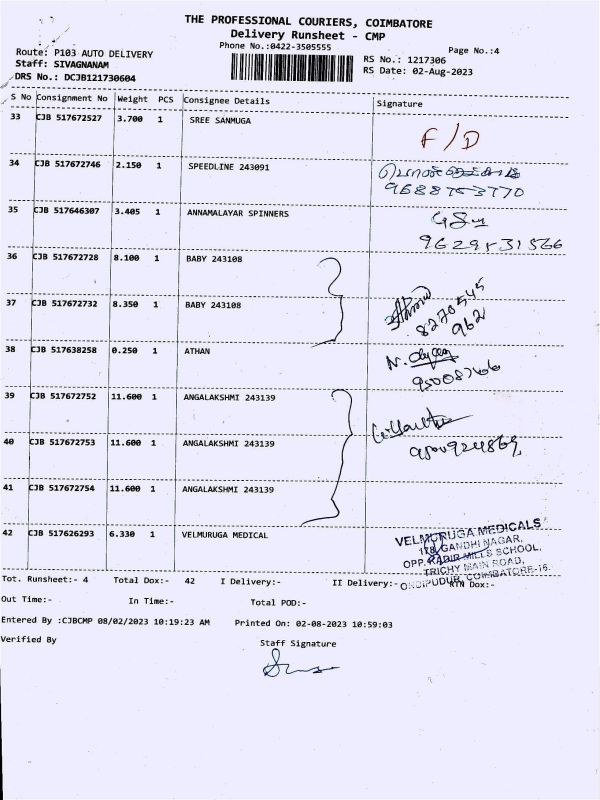 THE PROFESSIONAL COURIERS, COIMBATORE
Delivery Runsheet - CMP
Phone No.:0422-3505555
Page No.:4
Route: P103 AUTO DELIVERY
RS No.: 1217306
Staff: SIVAGNANAM
RS Date: 02-Aug-2023
DRS No.: DCJB121730604
S No Consignment No Weight PCS Consignee Details Signature
33 CJB 517672527 3.700 1 SREE SANMUGA F/D
34 CJB 517672746 2.150 1 SPEEDLINE 243091
35 CJB 517646307 3.405 1 ANNAMALAYAR SPINNERS
9629531566
36 CJB 517672728 8.100 1 BABY 243108
37 CJB 517672732 8.350 1 BABY 243108
8270545
962
38 CJB 517638258 0.250 1 ATHAN
39 CJB 517672752 11.600 1 ANGALAKSHMI 243139
40 CJB 517672753 11.600 1 ANGALAKSHMI 243139
41 CJB 517672754 11.600 1 ANGALAKSHMI 243139
42 CJB 517626293 6.330 1 VELMURUGA MEDICAL
VELMURUGA MEDICALS
GANDHI NAGAR,
OPP. MILLS SCHOOL,
TRICHY MAIN ROAD,
COIMBATORE-16.
Tot. Runsheet:- 4 Total Dox:- 42 I Delivery:- II Delivery:- RTN Dox:-
Out Time:- In Time:- Total POD:-
Entered By :CJBCMP 08/02/2023 10:19:23 AM Printed On: 02-08-2023 10:59:03
Verified By Staff Signature